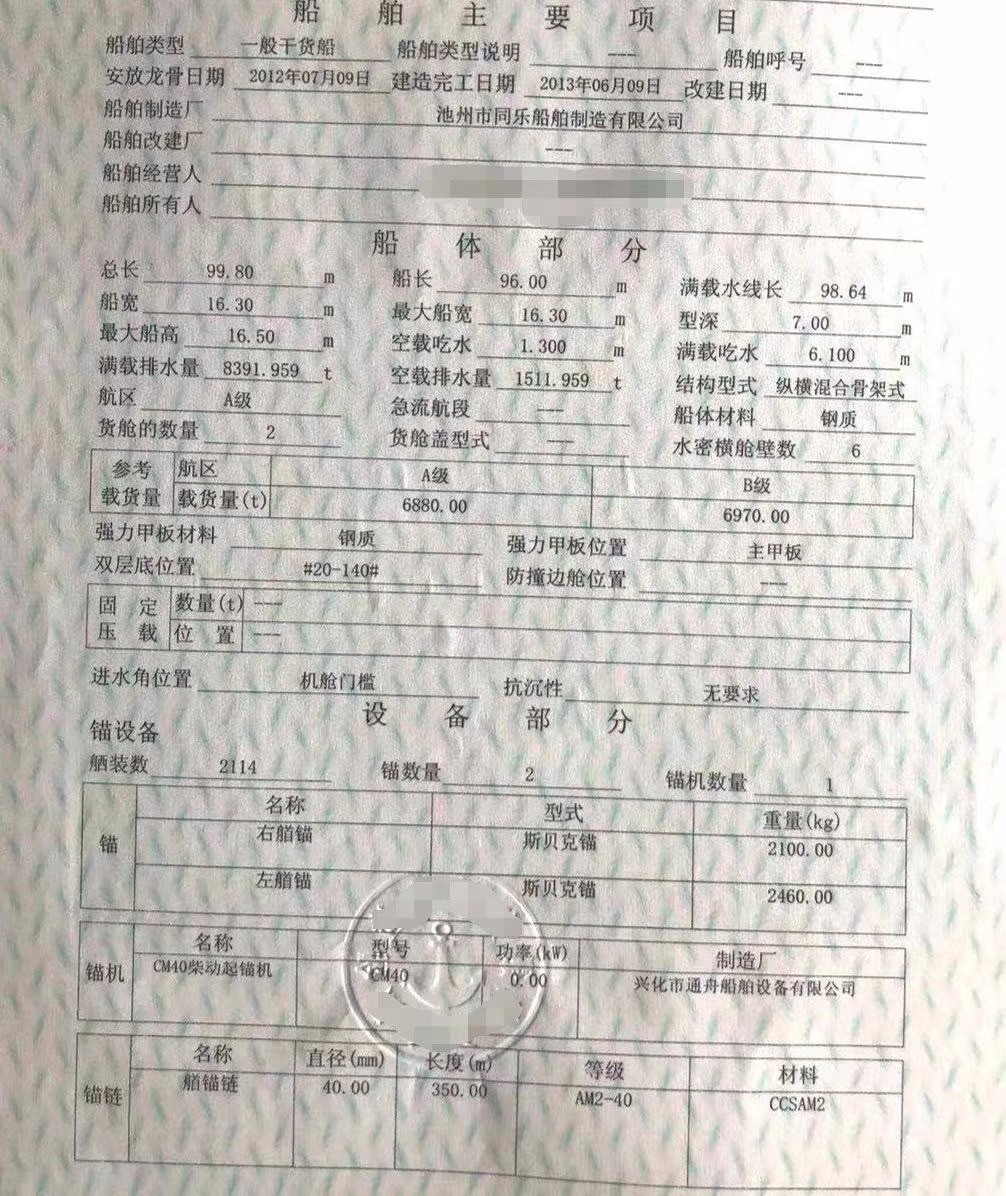 船舶主要项目
船舶类型 一般干货船 船舶类型说明 --- 船舶呼号 ---
安放龙骨日期 2012年07月09日 建造完工日期 2013年06月09日 改建日期 ---
船舶制造厂 池州市同乐船舶制造有限公司
船舶改建厂 ---
船舶经营人
船舶所有人
船体部分
总长 99.80 m 船长 96.00 m 满载水线长 98.64 m
船宽 16.30 m 最大船宽 16.30 m 型深 7.00 m
最大船高 16.50 m 空载吃水 1.300 m 满载吃水 6.100 m
满载排水量 8391.959 t 空载排水量 1511.959 t 结构型式 纵横混合骨架式
航区 A级 急流航段 --- 船体材料 钢质
货舱的数量 2 货舱盖型式 --- 水密横舱壁数 6
参考载货量 航区 A级 B级
载货量(t) 6880.00 6970.00
强力甲板材料 钢质 强力甲板位置 主甲板
双层底位置 #20-140# 防撞边舱位置 ---
固定压载 数量(t) ---
位置 ---
进水角位置 机舱门槛 抗沉性 无要求
设备部分
锚设备
舾装数 2114 锚数量 2 锚机数量 1
锚 名称 型式 重量(kg)
右艏锚 斯贝克锚 2100.00
左艏锚 斯贝克锚 2460.00
锚机 名称 型号 功率(kW) 制造厂
CM40柴动起锚机 CM40 0.00 兴化市通舟船舶设备有限公司
锚链 名称 直径(mm) 长度(m) 等级 材料
艏锚链 40.00 350.00 AM2-40 CCSAM2